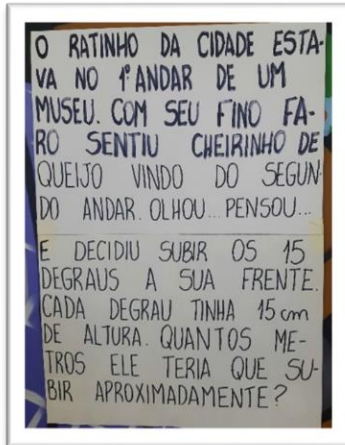 O RATINHO DA CIDADE ESTA-
VA NO 1º ANDAR DE UM
MUSEU. COM SEU FINO FA-
RO SENTIU CHEIRINHO DE
QUEIJO VINDO DO SEGUN-
DO ANDAR. OLHOU... PENSOU...
E DECIDIU SUBIR OS 15
DEGRAUS A SUA FRENTE.
CADA DEGRAU TINHA 15 cm
DE ALTURA. QUANTOS ME-
TROS ELE TERIA QUE SU-
BIR APROXIMADAMENTE?